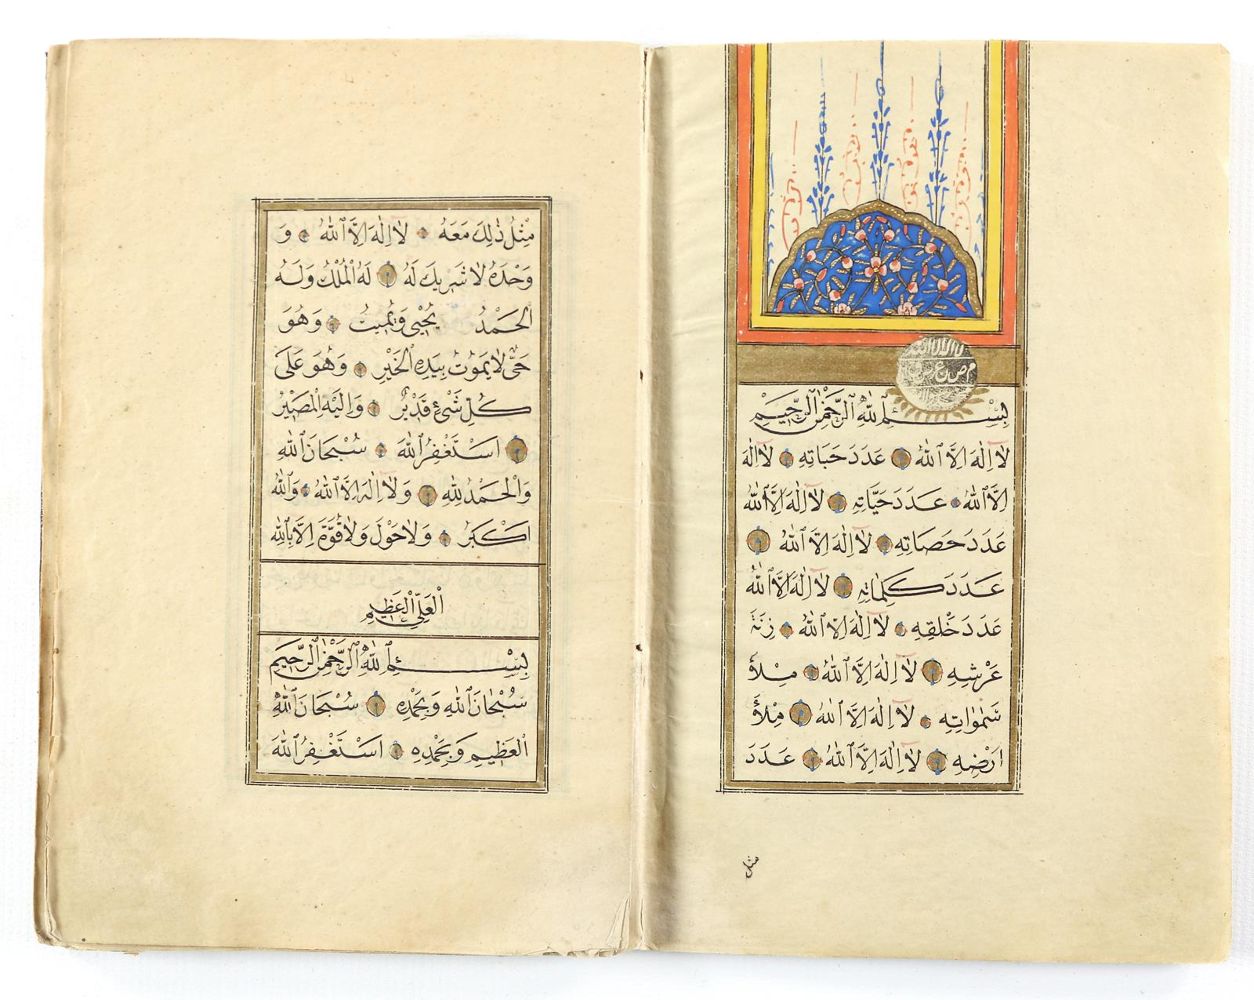 بِسْمِ اللهِ الرَّحْمٰنِ الرَّحِيمِ
لَا اِلٰهَ اِلَّا اللهُ عَدَدَ حَبَاتِهِ لَا اِلٰهَ
اِلَّا اللهُ عَدَدَ حَيَّاتِهِ لَا اِلٰهَ اِلَّا اللهُ
عَدَدَ حَصَاتِهِ لَا اِلٰهَ اِلَّا اللهُ
عَدَدَ كَلِمَاتِهِ لَا اِلٰهَ اِلَّا اللهُ
عَدَدَ خَلْقِهِ لَا اِلٰهَ اِلَّا اللهُ زِنَةَ
عَرْشِهِ لَا اِلٰهَ اِلَّا اللهُ مِلْأَ
سَمٰوَاتِهِ لَا اِلٰهَ اِلَّا اللهُ مِلْأَ
اَرْضِهِ لَا اِلٰهَ اِلَّا اللهُ عَدَدَ
مثل
مِثْلُ ذٰلِكَ مَعَهُ لَا اِلٰهَ اِلَّا اللهُ وَ
وَحْدَهُ لَا شَرِيكَ لَهُ لَهُ الْمُلْكُ وَلَهُ
الْحَمْدُ يُحْيِي وَيُمِيتُ وَهُوَ
حَيٌّ لَا يَمُوتُ بِيَدِهِ الْخَيْرُ وَهُوَ عَلَى
كُلِّ شَيْءٍ قَدِيرٌ وَاِلَيْهِ الْمَصِيرُ
اَسْتَغْفِرُ اللهَ سُبْحَانَ اللهِ
وَالْحَمْدُ لِلهِ وَلَا اِلٰهَ اِلَّا اللهُ وَاللهُ
اَكْبَرُ وَلَا حَوْلَ وَلَا قُوَّةَ اِلَّا بِاللهِ
الْعَلِيِّ الْعَظِيمِ
بِسْمِ اللهِ الرَّحْمٰنِ الرَّحِيمِ
سُبْحَانَ اللهِ وَبِحَمْدِهِ سُبْحَانَ اللهِ
الْعَظِيمِ وَبِحَمْدِهِ اَسْتَغْفِرُ اللهَ